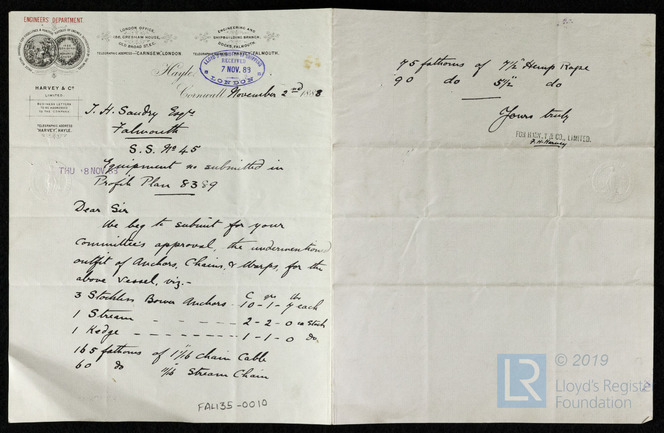 ENGINEERS DEPARTMENT.
LONDON OFFICE,
186, GRESHAM HOUSE,
OLD BROAD ST. E.C.
TELEGRAPHIC ADDRESS "CARNSEW, LONDON.
ENGINEERING AND
SHIPBUILDING BRANCH,
DOCKS, FALMOUTH.
FALMOUTH.
HARVEY & Co
LIMITED.
BUSINESS LETTERS
TO BE ADDRESSED
TO THE COMPANY.
TELEGRAPHIC ADDRESS
"HARVEY", HAYLE.
RECEIVED
7 NOV. 83
LONDON
Hayle,
Cornwall November 2nd 1883
T. H. Sandry Esqre
Falmouth
S.S. No 45
THU 8 NOV 83
Equipment as submitted in
Profile Plan 8389
Dear Sir
We beg to submit for your
Committee's approval, the undermentioned
outfit of Anchors, Chains, & Warps, for the
above vessel, viz:-
C qrs lbs
3 Stockless Bower Anchors - 10-1-7 each
1 Stream 2-2-0 ex Stock
1 Kedge 1-1-0 do.
165 fathoms of 1 1/16 chain Cable
60 do 11/16 Stream Chain
FAL135-0010
75 fathoms of 7 1/2" Hemp Rope
90 do 5 1/2" do
Yours truly
FOR HARVEY & CO., LIMITED.
© 2019
LR
Lloyd's Register
Foundation